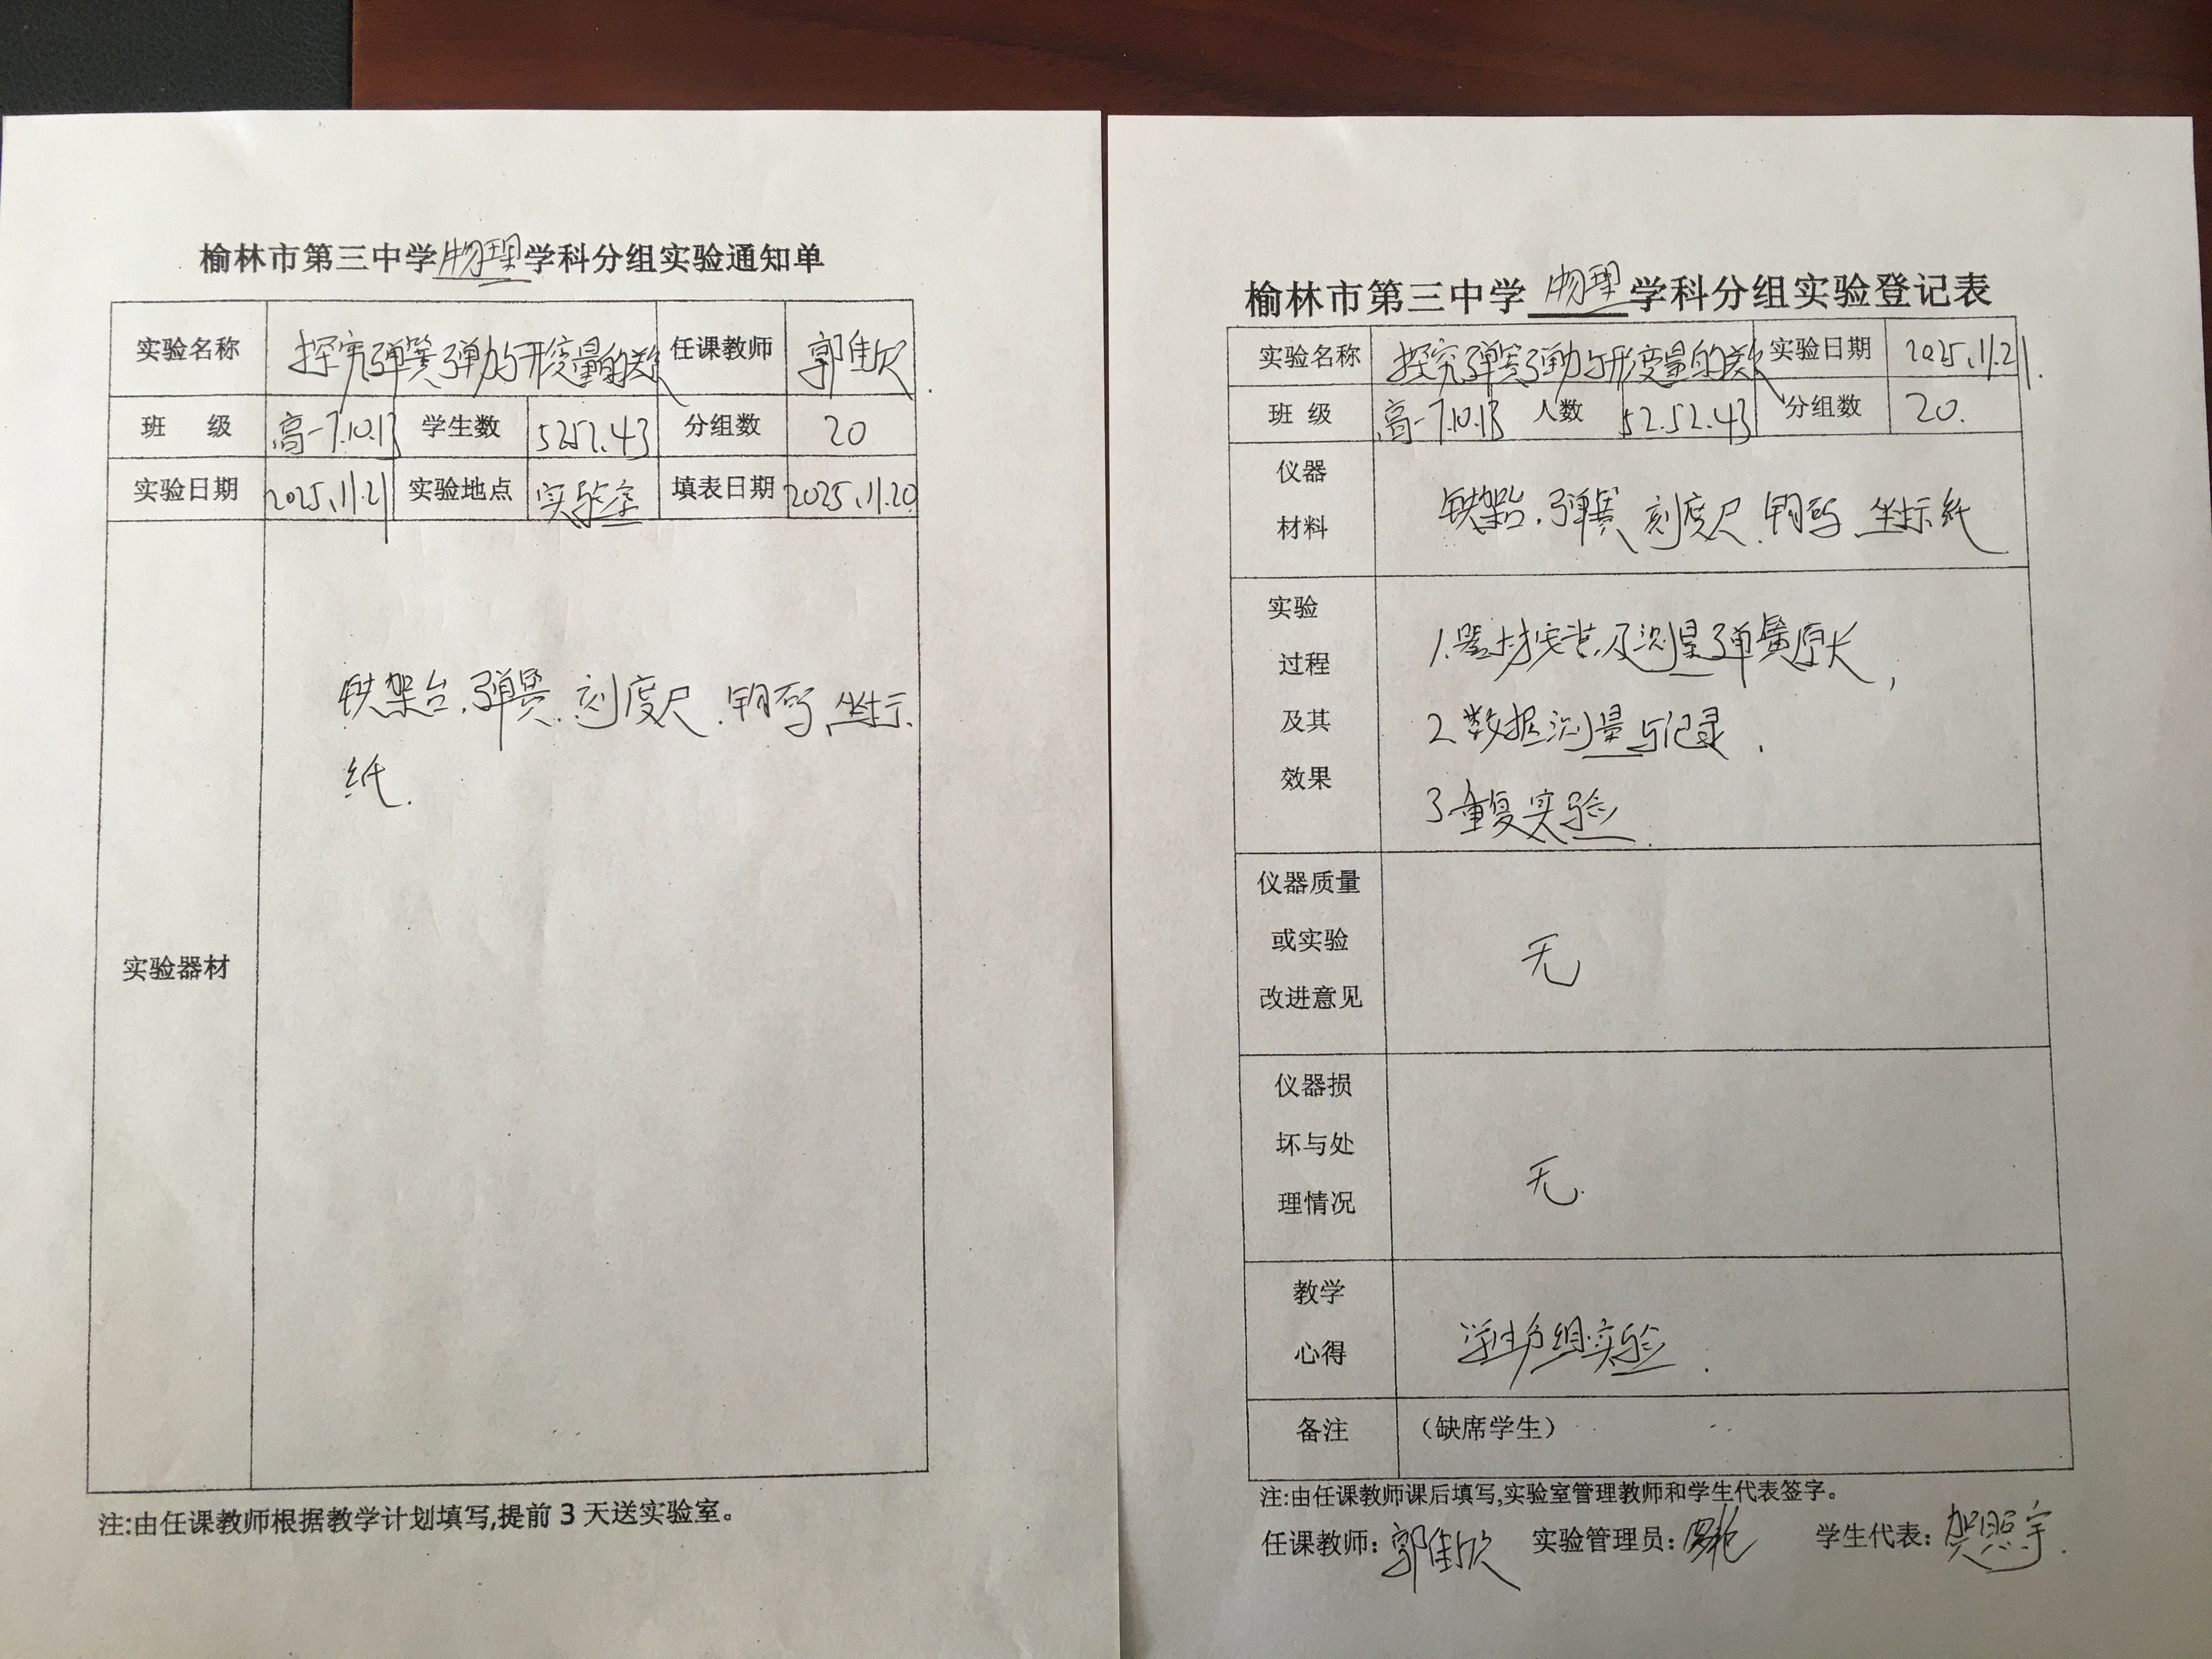 榆林市第三中学物理学科分组实验通知单
实验名称 探究弹簧弹力与形变量的关 任课教师 郭佳欣
班 级 高一7.10.13 学生数 52 52.43 分组数 20
实验日期 2025.11.21 实验地点 实验室 填表日期 2025.11.20
实验器材
铁架台.弹簧.刻度尺.钩码.坐标
纸.
注:由任课教师根据教学计划填写,提前3天送实验室。
榆林市第三中学物理学科分组实验登记表
实验名称 探究弹簧弹力与形变量的关 实验日期 2025.11.21.
班 级 高一7.10.13 人数 52.52.43 分组数 20.
仪器
材料
铁架台.弹簧 刻度尺.钩码 坐标纸
实验
过程
及其
效果
1.器材安装及测量弹簧原长,
2.数据测量与记录.
3.重复实验.
仪器质量
或实验
改进意见
无
仪器损
坏与处
理情况
无.
教学
心得
学生分组实验.
备注 (缺席学生)
注:由任课教师课后填写,实验室管理教师和学生代表签字。
任课教师:郭佳欣 实验管理员: 学生代表:贺照宇.